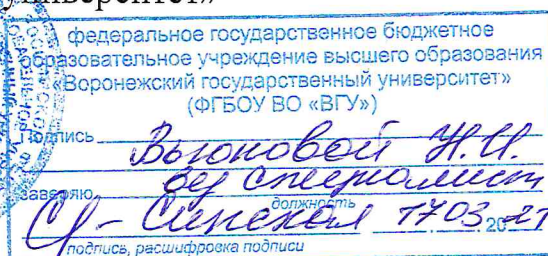 университет»
федеральное государственное бюджетное
образовательное учреждение высшего образования
«Воронежский государственный университет»
(ФГБОУ ВО «ВГУ»)
Подпись Вьюновой Н.И.
заверяю вед специалист
должность
Синская 17 03 2021
подпись, расшифровка подписи